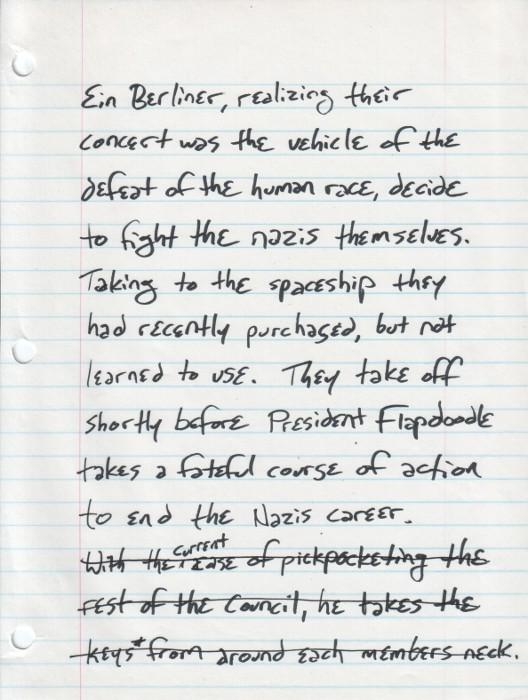 Ein Berliner, realizing their
concert was the vehicle of the
defeat of the human race, decide
to fight the nazis themselves.
Taking to the spaceship they
had recently purchased, but not
learned to use. They take off
shortly before President Flapdoodle
takes a fateful course of action
to end the Nazis career.
current
With the ease of pickpocketing the
rest of the Council, he takes the
keys* from around each members neck.